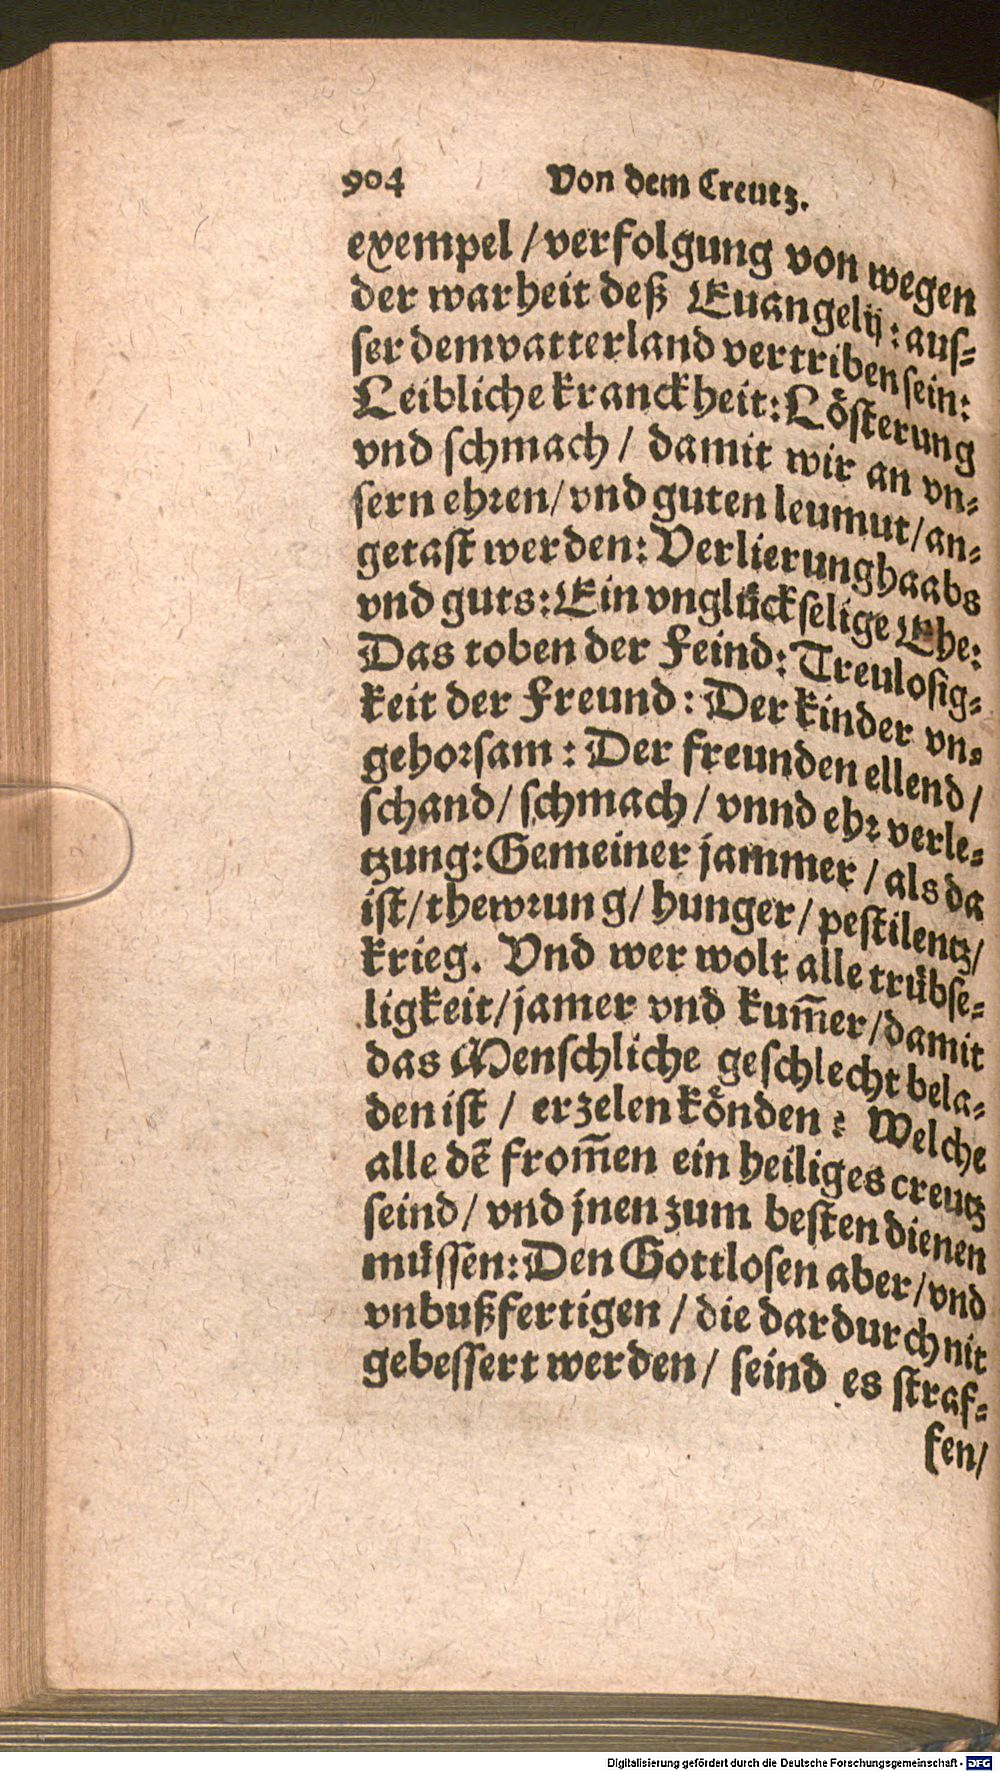 904 Von dem Creutz.
exempel / verfolgung von wegen
der warheit deß Euangelij : aus⸗
ser dem vatterland vertriben sein:
Leibliche kranckheit: Löſterung
vnd ſchmach / damit wir an vn⸗
ſern ehꝛen / vnd guten leumut / an⸗
getaſt werden: Verlierung haabs
vnd guts: Ein vnglückſelige Ehe:
Das toben der Feind: Treuloſig⸗
keit der Freund : Der kinder vn⸗
gehoꝛſam : Der freunden ellend /
ſchand / ſchmach / vnnd ehꝛ verle⸗
tzung: Gemeiner jammer / als da
iſt / thewꝛung / hunger / peſtilentz /
krieg. Vnd wer wolt alle trübſe⸗
ligkeit / jamer vnd kum̃er / damit
das Menſchliche geſchlecht bela⸗
den iſt / erzelen könden ? Welche
alle dẽ from̃en ein heiliges creutz
ſeind / vnd jnen zum beſten dienen
müſſen: Den Gottloſen aber / vnd
vnbußfertigen / die dardurch nit
gebeſſert werden / ſeind es ſtraf⸗
fen /
Digitalisierung gefördert durch die Deutsche Forschungsgemeinschaft - DFG